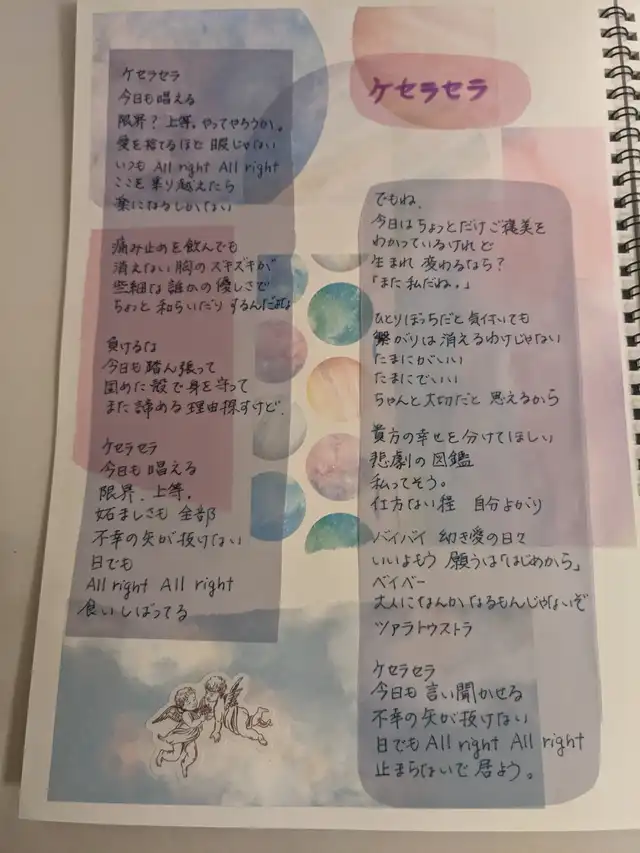 ケセラセラ
ケセラセラ
今日も唱える
限界?上等。やってやろうか。
愛を捨てるほど 暇じゃない
いつも All right All right
ここを乗り越えたら
楽になるしかない
痛み止めを飲んでも
消えない胸のズキズキが
些細な誰かの優しさで
ちょっと和らいだりするんだよな
負けるな
今日も踏ん張って
固めた殻で身を守って
また諦める理由探すけど、
ケセラセラ
今日も唱える
限界、上等。
妬ましさも 全部
不幸の矢が抜けない
日でも
All right All right
食いしばってる
でもね、
今日はちょっとだけご褒美を
わかっているけれど
生まれ変わるなら?
「また私だね。」
ひとりぼっちだと気付いても
繋がりは消えるわけじゃない
たまにがいい
たまにでいい
ちゃんと大切だと思えるから
貴方の幸せを分けてほしい
悲劇の図鑑
私ってそう。
仕方ない程 自分よがり
バイバイ 幼き愛の日々
いいよもう 願うは「はじめから」
ベイベー
大人になんかなるもんじゃないぞ
ツァラトゥストラ
ケセラセラ
今日も言い聞かせる
不幸の矢が抜けない
日でも All right All right
止まらないで居よう。